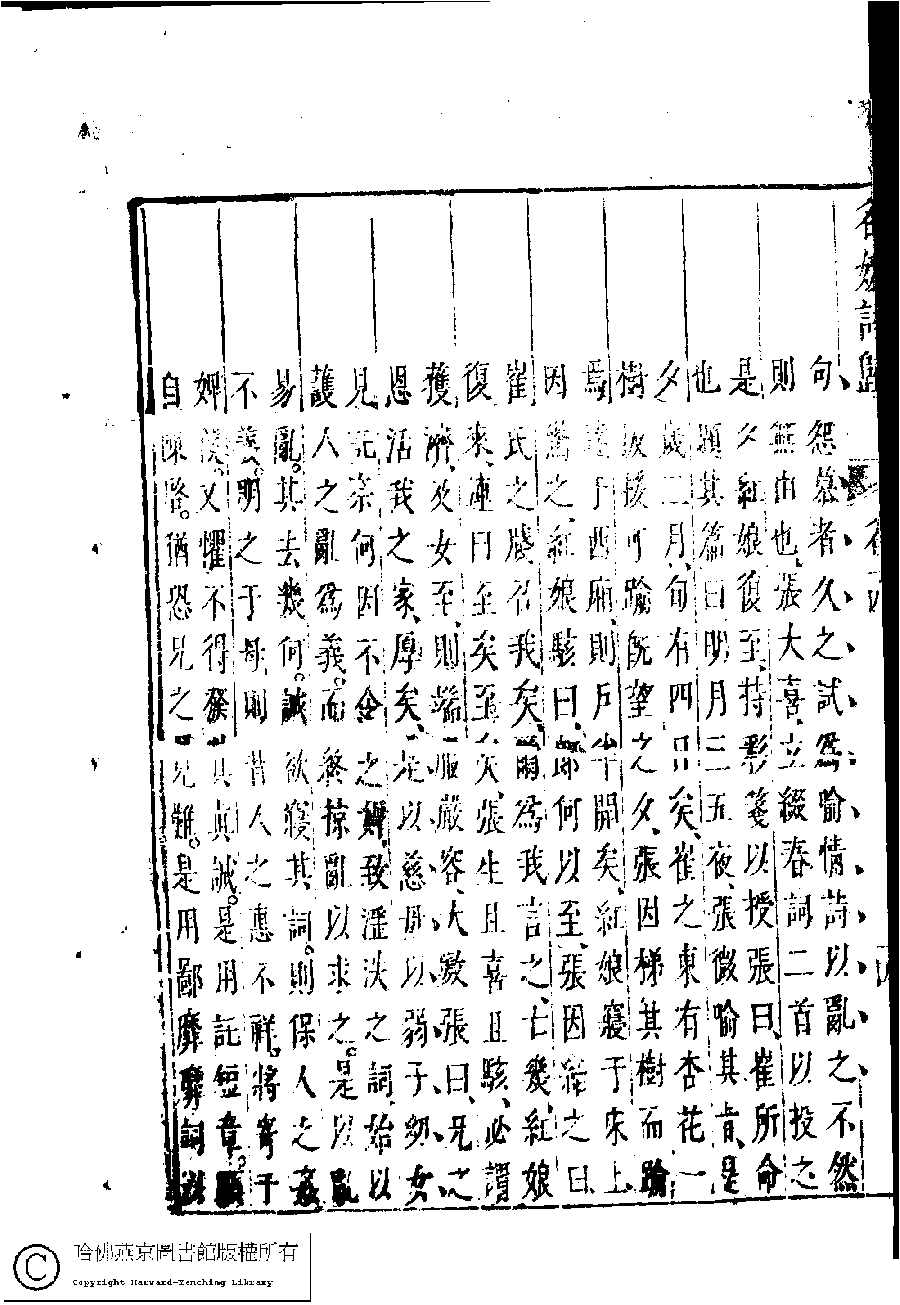 名媛詩歸
句、怨慕者、久、之、試、爲、喻、情、詩、以、亂、之、不然
則無由也、張大喜、立綴春詞二首以投之
是夕紅娘復至、持彩箋以授張曰、崔所命
也、題其篇曰明月三五夜、張微喻其旨、是
夕歲二月、旬有四日矣、崔之東有杏花一
樹、扳援可踰、旣望之夕、張因梯其樹而踰
焉、達于西廂、則戶半開矣、紅娘寢于床上
因驚之、紅娘駭曰、郎何以至、張因紿之曰
崔氏之牋召我矣、爾爲我言之、亡幾、紅娘
復來、連曰至矣至矣、張生且喜且駭、必謂
獲濟、及女至、則端服嚴容、大數張曰、兄之
恩活我之家、厚矣、是以慈母以弱子幼女
見託、奈何因不令之婢、致淫泆之詞、始以
護人之亂爲義。而終掠亂以求之。是以亂
易亂。其去幾何。誠欲寢其詞。則保人之姦
不義。明之于母則背人之惠不祥。將寄于
婢僕。又懼不得發其眞誠。是用託短章。願
自陳啓。猶恐兄之見難。是用鄙靡靡詞以
哈佛燕京圖書館版權所有
Copyright Harvard-Yenching Library